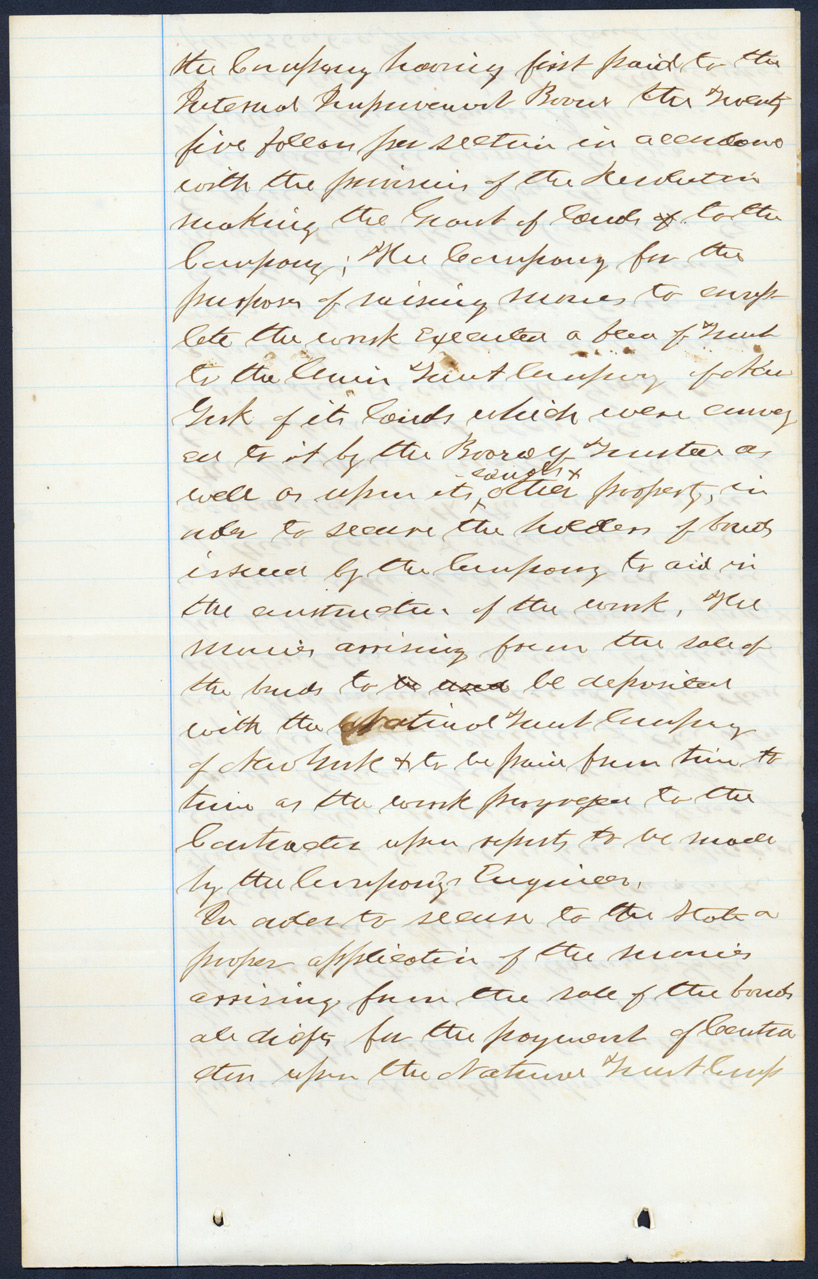 the Company having first paid to the
Internal Improvement Board the Twenty
five dollars per section in accordance
with the provisions of the Resolution
making the Grant of lands to the
Company; The Company for the
purpose of raising monies to comp-
lete the work Executed a deed of Trust
to the Union Trust Company of New
York of its lands which were convey
ed to it by the Board of Trustees as
well as upon its canals & other property, in
order to secure the holders of bonds
issued by the Company to aid in
the construction of the work, The
monies arrising from the sale of
the bonds to be used be deposited
with the National Trust Company
of New York & to be paid from time to
time as the work progressed to the
Contractor upon reports to be made
by the Company's Engineer.
In order to secure to the State a
proper application of the monies
arrising from the sale of the bonds
all drafts for the payment of Contra
ctors upon the National Trust Comp